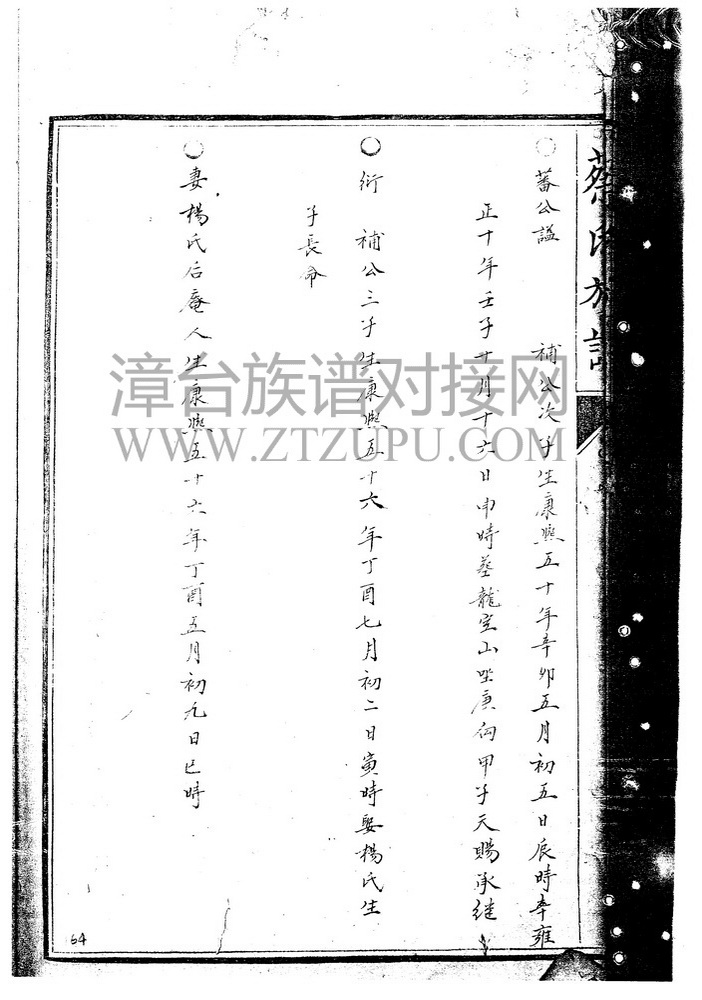 蔡氏族譜
蕃公諡 補公次子生康熙五十年辛卯五月初五日辰時卒雍
正十年壬子十月十六日申時葬龍室山坐庚向甲子天賜承継
衍 補公三子生康熙五十六年丁酉七月初二日寅時娶楊氏生
子長命
妻楊氏后庵人生康熙五十六年丁酉五月初九日巳時
64
漳台族谱对接网
WWW.ZTZUPU.COM